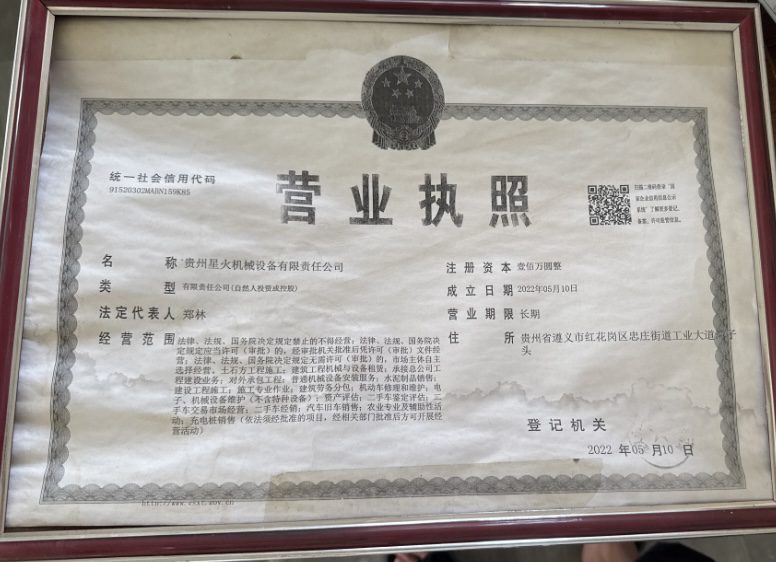 统一社会信用代码
91520302MABNJ59KH5
营业执照
扫描二维码登录"国
家企业信用信息公示
系统"了解更多登记、
备案、许可监管信息。
名称 贵州星火机械设备有限责任公司
类型 有限责任公司(自然人投资或控股)
法定代表人 郑林
经营范围 法律、法规、国务院决定规定禁止的不得经营;法律、法规、国务院决
定规定应当许可(审批)的,经审批机关批准后凭许可(审批)文件经
营;法律、法规、国务院决定规定无需许可(审批)的,市场主体自主
选择经营。土石方工程施工;建筑工程机械与设备租赁;承接总公司工
程建设业务;对外承包工程;普通机械设备安装服务;水泥制品销售;
建设工程施工;施工专业作业;建筑劳务分包;机动车修理和维护;电
子、机械设备维护(不含特种设备);资产评估;二手车鉴定评估;二
手车交易市场经营;二手车经销;汽车旧车销售;农业专业及辅助性活
动;充电桩销售(依法须经批准的项目,经相关部门批准后方可开展经
营活动)
注册资本 壹佰万圆整
成立日期 2022年05月10日
营业期限 长期
住所 贵州省遵义市红花岗区忠庄街道工业大道 子
头
登记机关
2022 年05 月10 日